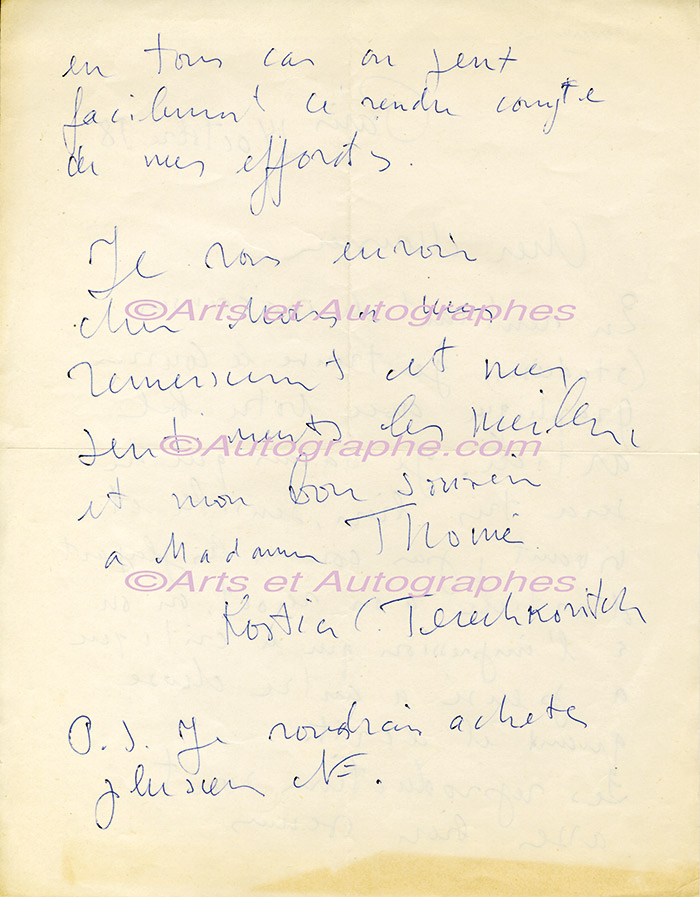 en tous cas on peut
facilement ce rendre compte
de mes effordts.
Je vous envoie
©Arts et Autographes
cher mes
remerciment et mes
sentiments les meileur
©Autographe.com
et mon bon souvenir
a Madame Thomé
©Arts et Autographes
Kostia Terechkovitch
P.S. Je voudrais acheter
plusieur N=.